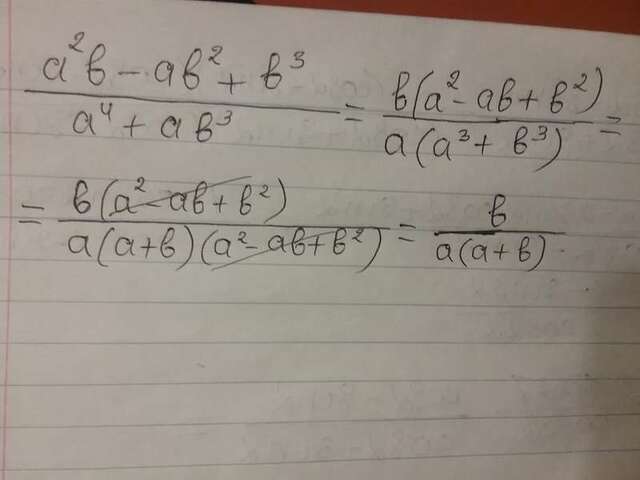 (a²b - ab² + b³)/(a⁴ + ab³) = b(a² - ab + b²)/a(a³ + b³) =
= b(a² - ab + b²)/a(a+b)(a² - ab + b²) = b/a(a+b)